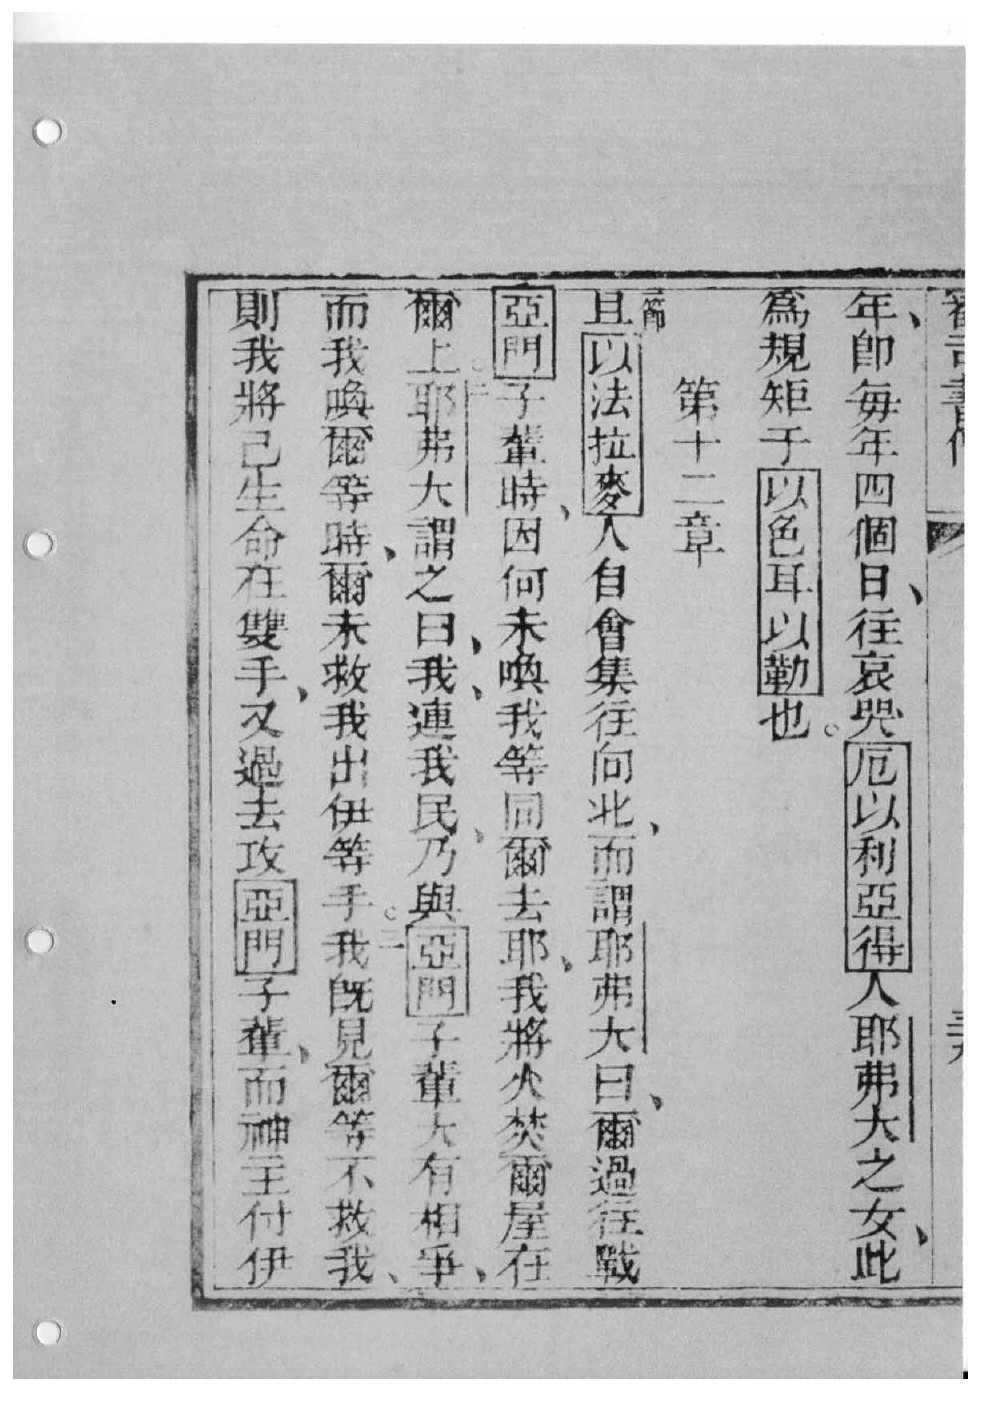 年、即每年四個日、往哀哭厄以利亞得人耶弗大之女、此
爲規矩于以色耳以勒也。
第十二章
一節且以法拉麥人自會集往向北、而謂耶弗大曰、爾過往戰
亞門子輩時、因何未喚我等同爾去耶、我將火焚爾屋在
爾上。二耶弗大謂之曰、我、連我民、乃與亞門子輩大有相爭、
而我喚爾等時、爾未救我出伊等手。三我旣見爾等不救我、
則我將己生命在雙手、又過去攻亞門子輩、而神主付伊